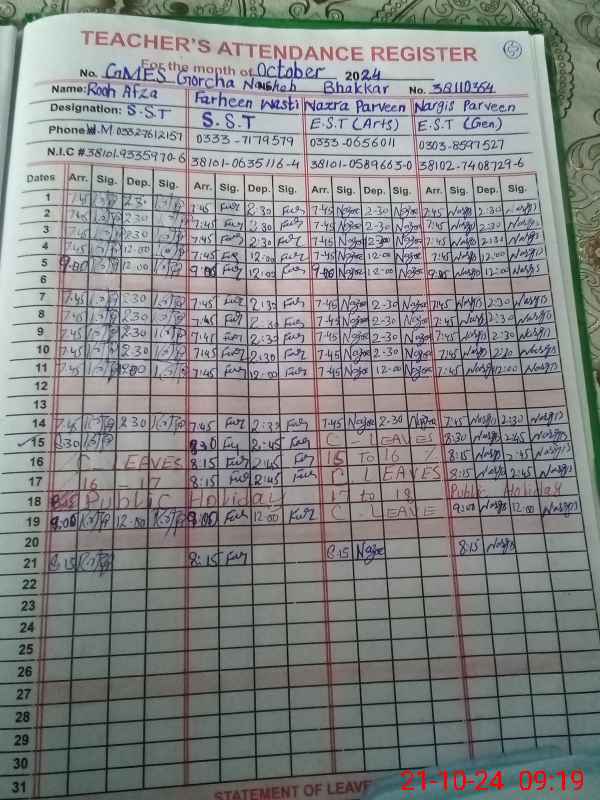 TEACHER'S ATTENDANCE REGISTER
For the month of October 2024
No. GMES Gorcha Bhakkar No. 38110354
Name: Rooh Afza Farheen Wasti Nazra Parveen Nargis Parveen
Designation: S.ST S.ST E.S.T (Arts) E.S.T (Gen)
Phone 0333-7179579 0333-0656011 0303-8597527
N.I.C # 38101-9335970-6 38101-0635116-4 38101-0589663-0 38102-7408729-6
Dates Arr. Sig. Dep. Sig. Arr. Sig. Dep. Sig. Arr. Sig. Dep. Sig. Arr. Sig. Dep. Sig.
1 7:45 2:30 7:45 Far 2:30 Far 7:45 Nazra 2-30 Nazra 7:45 Nargis 2:30 Nargis
2 7:45 2:30 7:45 Far 2:30 Far 7-45 Nazra 2-30 Nazra 7:45 Nargis 2:30 Nargis
3 7:45 2:30 7:45 Far 2:30 Far 7-45 Nazra 2-30 Nazra 7:45 Nargis 2:30 Nargis
4 7:45 12:00 7:45 Far 12:00 Far 7-45 Nazra 12-00 Nazra 7:45 Nargis 12:00 Nargis
5 9:00 12:00 9:00 Far 12:00 Far 9:00 Nazra 12-00 Nazra 9:00 Nargis 12:00 Nargis
6
7 7:45 2:30 7:45 Far 2:30 Far 7-45 Nazra 2-30 Nazra 7:45 Nargis 2:30 Nargis
8 7:45 2:30 7:45 Far 2:30 Far 7-45 Nazra 2-30 Nazra 7:45 Nargis 2:30 Nargis
9 7:45 2:30 7:45 Far 2:30 Far 7-45 Nazra 2-30 Nazra 7:45 Nargis 2:30 Nargis
10 7:45 2:30 7:45 Far 2:30 Far 7-45 Nazra 2-30 Nazra 7:45 Nargis 2:30 Nargis
11 7:45 7:45 Far 12:00 Far 7-45 Nazra 12:00 Nazra 7:45 Nargis 12:00 Nargis
12
13
14 7:45 2:30 7:45 Far 2:30 Far 7:45 Nazra 2-30 Nazra 7:45 Nargis 2:30 Nargis
15 8:30 8:30 Far 2:45 Far C. LEAVES 8:30 Nargis 2:45 Nargis
16 C. LEAVES 8:15 Far 2:45 Far 15 To 16 8:15 Nargis 2:45 Nargis
17 16 - 17 8:15 Far 2:45 Far C. LEAVES 8:15 Nargis 2:45 Nargis
18 Public Holiday 17 to 18 Public Holiday
19 9:00 12:00 9:00 Far 12:00 Far C. LEAVE 9:00 Nargis 12:00 Nargis
20
21 8:15 8:15 Far 8:15 Nazra 8:15 Nargis
22
23
24
25
26
27
28
29
30
31
STATEMENT OF LEAVE
21-10-24 09:19